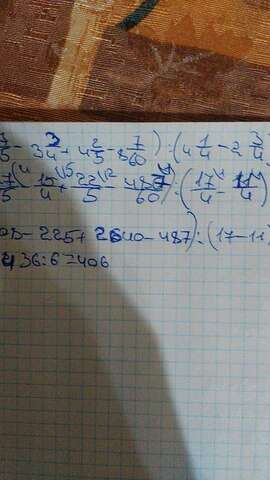 /5 - 3 3/4 + 4 2/5 - 8 7/60) : (4 1/4 - 2 3/4
7/5 - 15/4 + 22/5 - 487/60) : (17/4 - 11/4)
08 - 225 + 2640 - 487) : (17 - 11
436 : 6 = 406